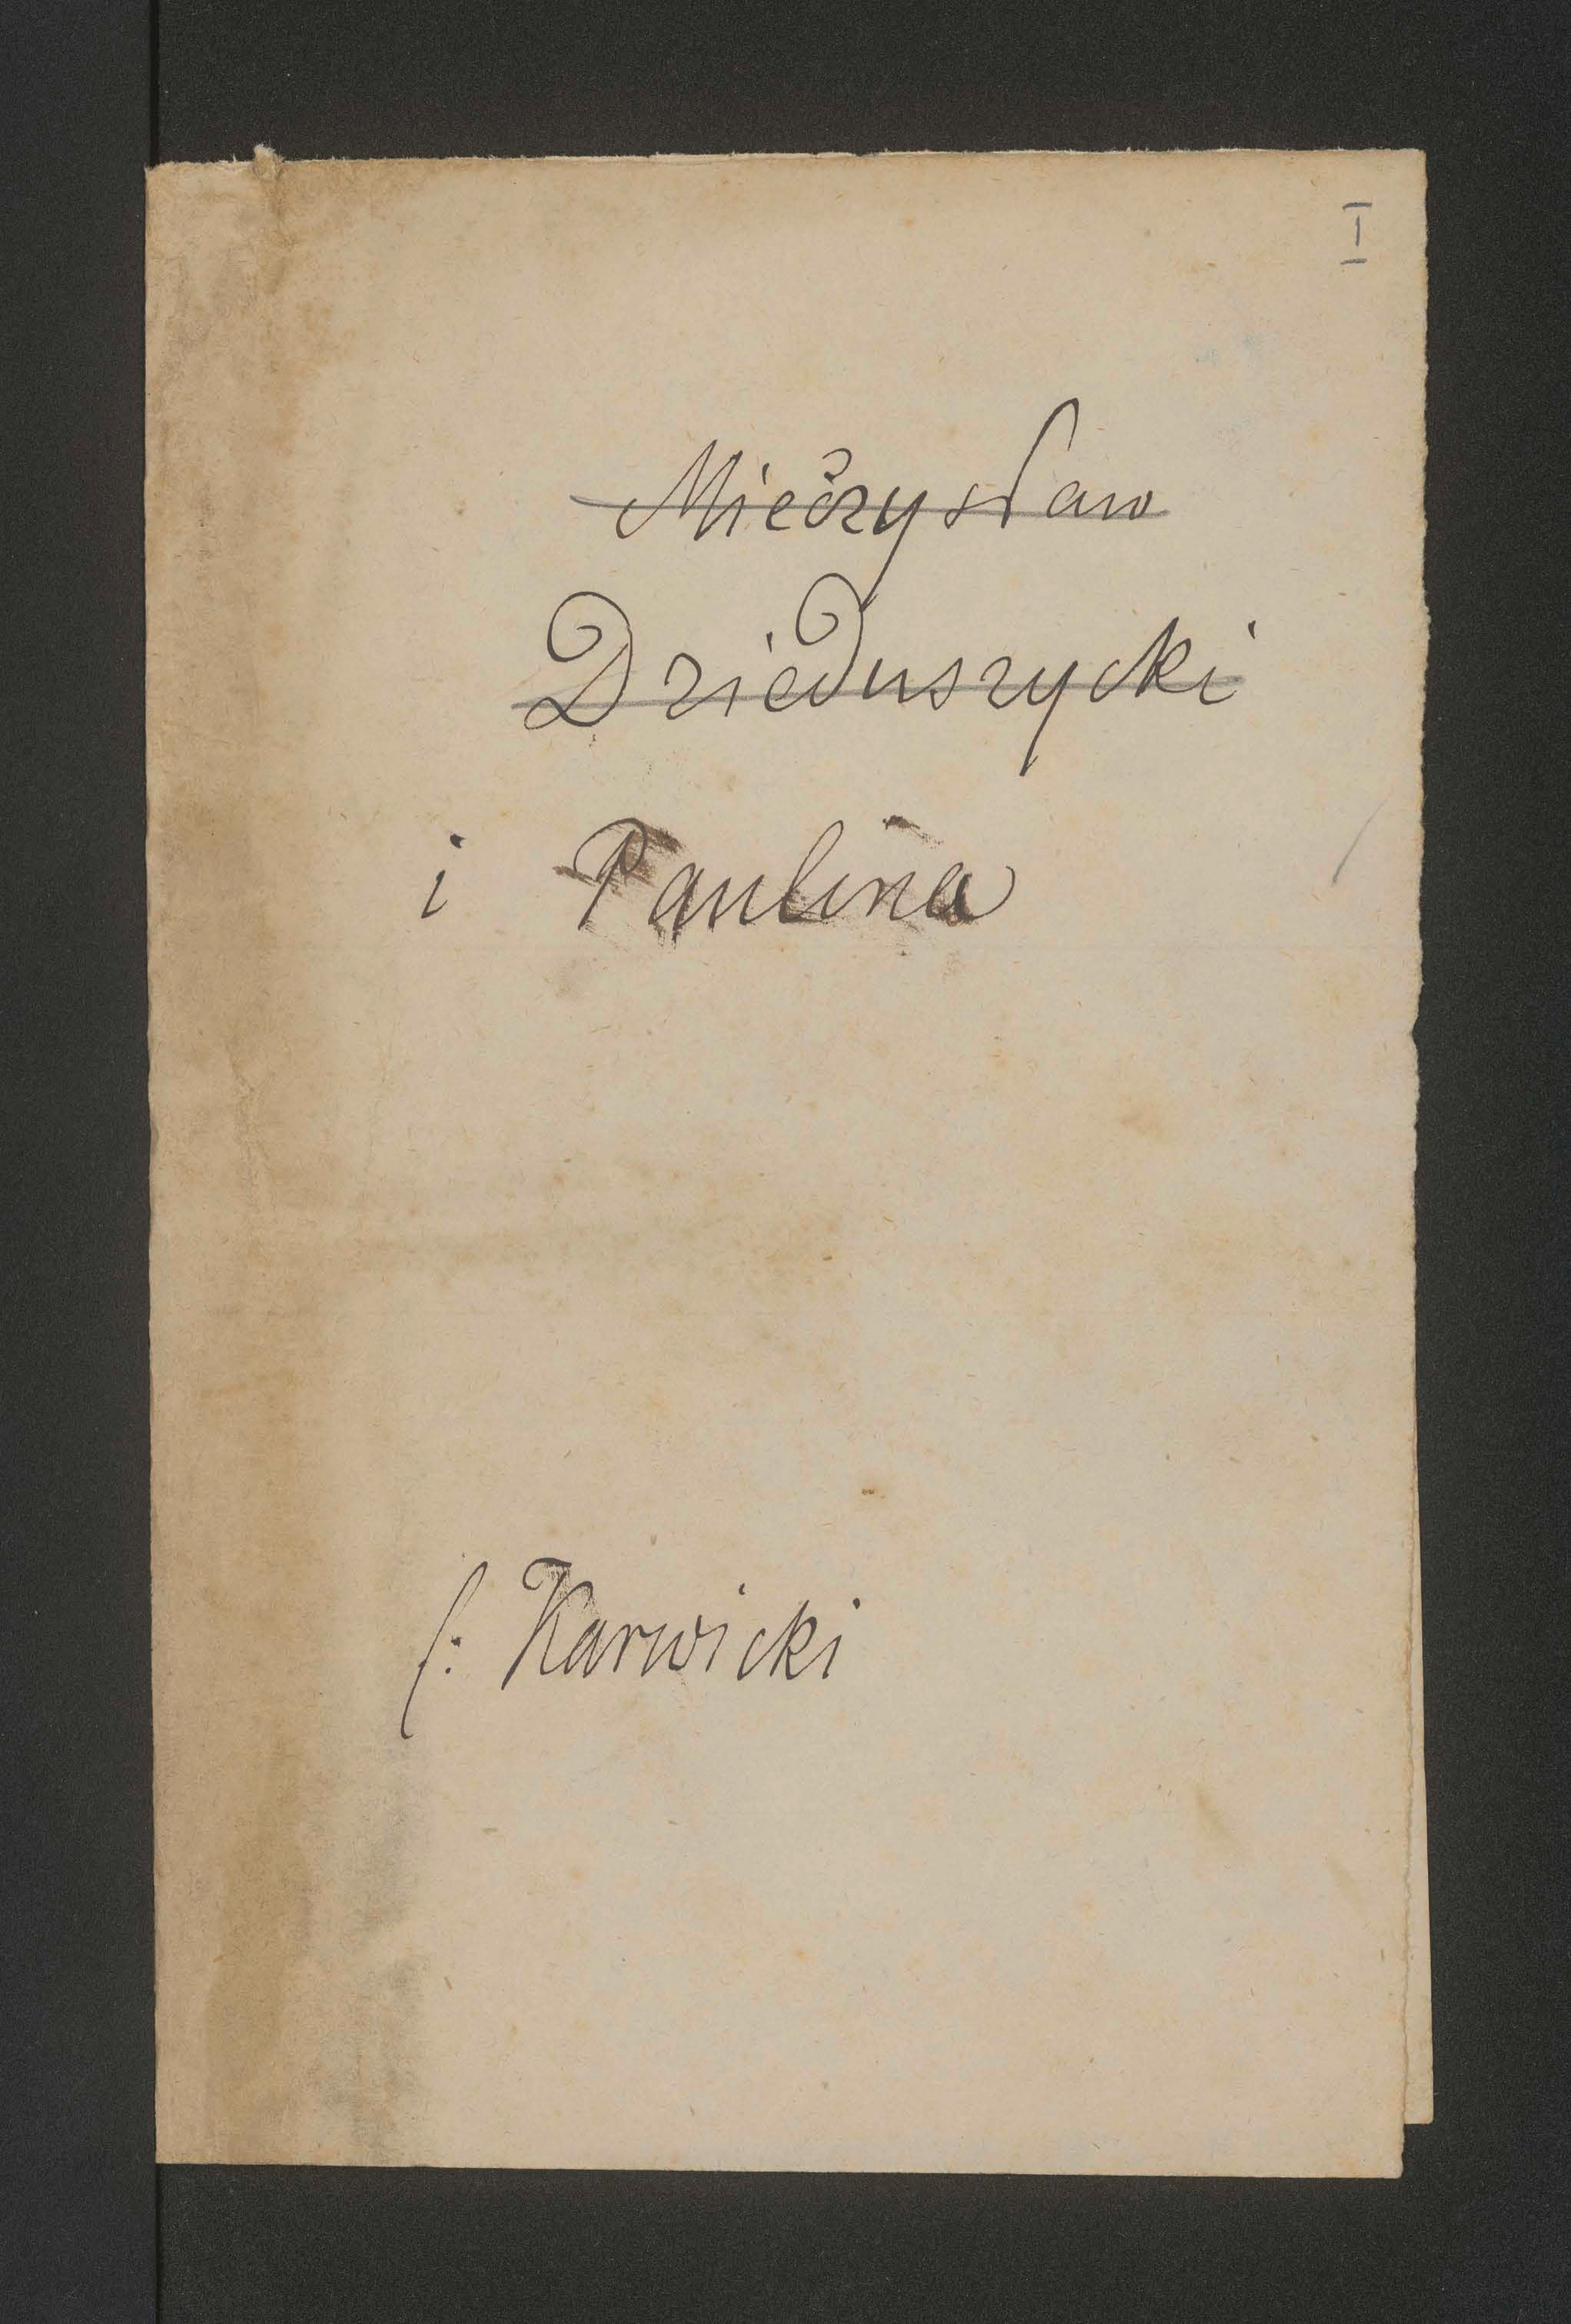 I
Mieczysław
Dzieduszycki
i Paulina
f: Karwicki